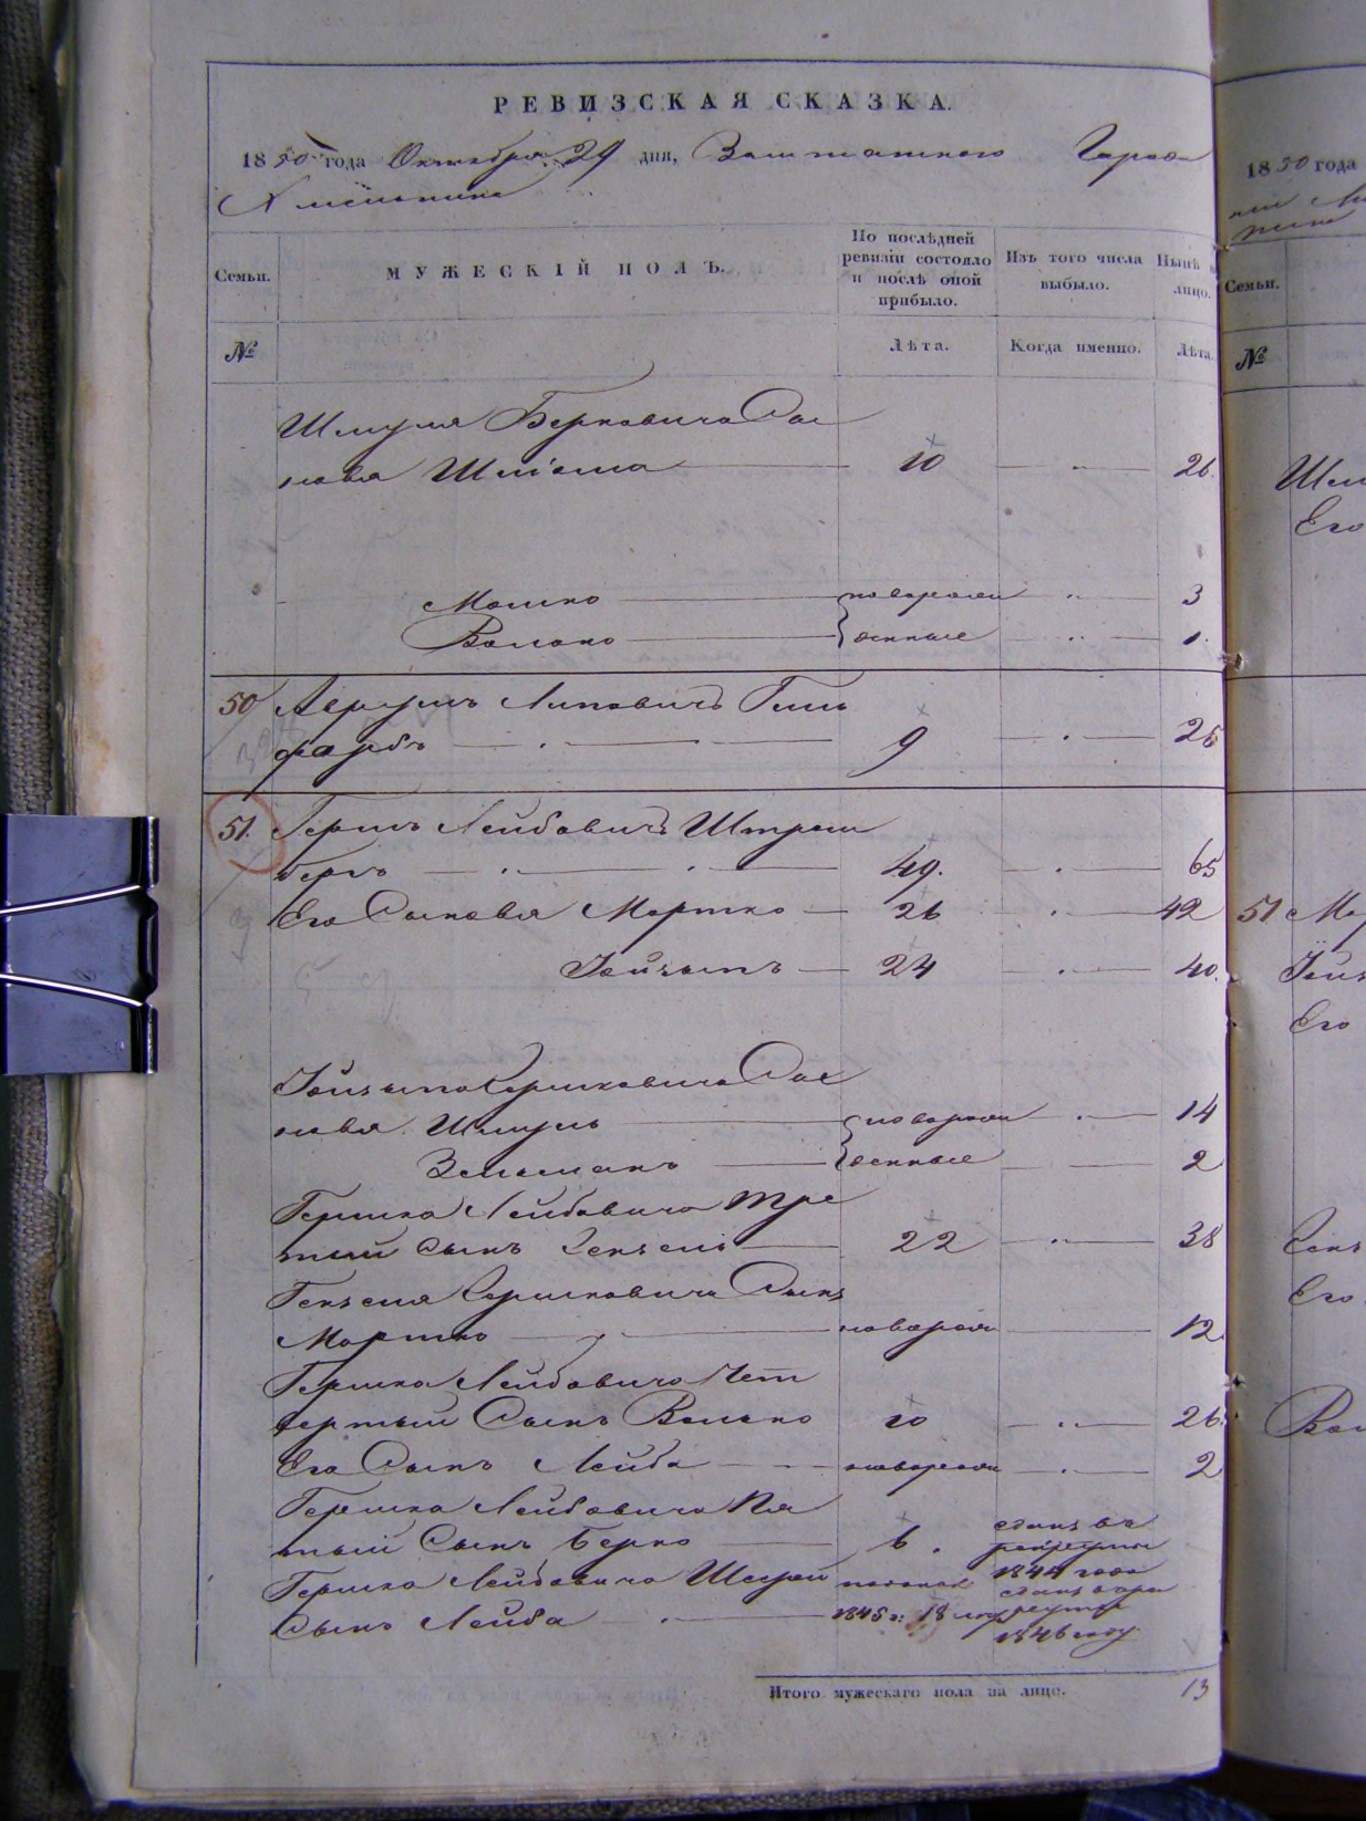 РЕВИЗСКАЯ СКАЗКА.
1850 года Октября 29 дня, Заштатного Города
Хмельника
Семьи. МУЖЕСКІЙ ПОЛЪ. По послѣдней ревизіи состояло и послѣ оной прибыло. Изъ того числа выбыло. Нынѣ на лицо.
№ Лѣта. Когда именно. Лѣта.
Шмуля Берковича Сы
новья Шлiома 10 26.
Мошко новорож 3
Волько денные 1.
50 Аврумъ Липовичъ Гиль
фарбъ 9 25
51. Гершъ Лейбовичъ Штром
бергъ 49. 65
Его Сыновья Мортко 26 42
Іойзыпъ 24 40.
Іойзыпа Гершковича Сы
новья Шмуль новорож 14
Зельманъ денные 2
Гершка Лейбовича Тре
тий Сынъ Гензель 22 38
Гензеля Гершковича Сынъ
Мортко новорож 12
Гершка Лейбовича Чет
вертый Сынъ Волько 10 26.
Его Сынъ Лейба новорож 2
Гершка Лейбовича Пя
тый Сынъ Берко 6. сданъ въ рекруты 1844 года
Гершка Лейбовича Шестой
Сынъ Лейба 1845 г: 18 лет сданъ в рекруты 1846 году.
Итого мужескаго пола на лицо. 13
1850 года
Семьи.
№
Его
51
Его
Его